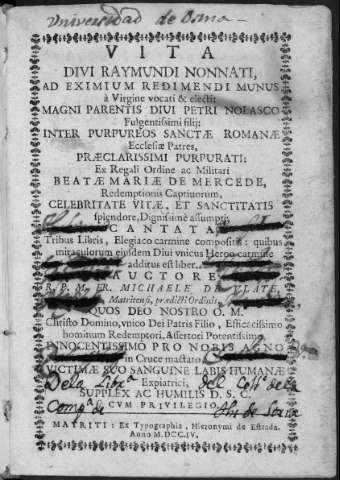 Universidad de Osma
VITA
DIVI RAYMUNDI NONNATI,
AD EXIMIUM REDIMENDI MUNUS
à Virgine vocati & electi:
MAGNI PARENTIS DIUI PETRI NOLASCO
Fulgentissimi filij:
INTER PURPUREOS SANCTÆ ROMANÆ
Ecclesiæ Patres,
PRÆCLARISSIMI PURPURATI:
Ex Regali Ordine ac Militari
BEATÆ MARIÆ DE MERCEDE,
Redemptionis Captivorum,
CELEBRITATE VITÆ, ET SANCTITATIS
splendore, Dignissimè assumpti,
CANTATA
Tribus Libris, Elegiaco carmine compositis: quibus
miraculorum eiusdem Diui vnicus Heroo carmine
additus est liber.
AUCTORE
R. P. M. FR. MICHAELE DE ULATE,
Matritensi, prædicti Ordinis,
QUOS DEO NOSTRO O. M.
Christo Domino, vnico Dei Patris Filio, Efficacissimo
hominum Redemptori, Assertori Potentissimo
INNOCENTISSIMO PRO NOBIS AGNO
in Cruce mactato
VICTIMÆ SUO SANGUINE LABIS HUMANÆ
Dela Libr.ª Expiatrici, del Coll.º de la
SUPPLEX AC HUMILIS D. S. C.
Comp.ª de CUM PRIVILEGIO Jhs de Soria
MATRITI: Ex Typographia, Hieronymi de Estrada.
Anno M.DCC.IV.